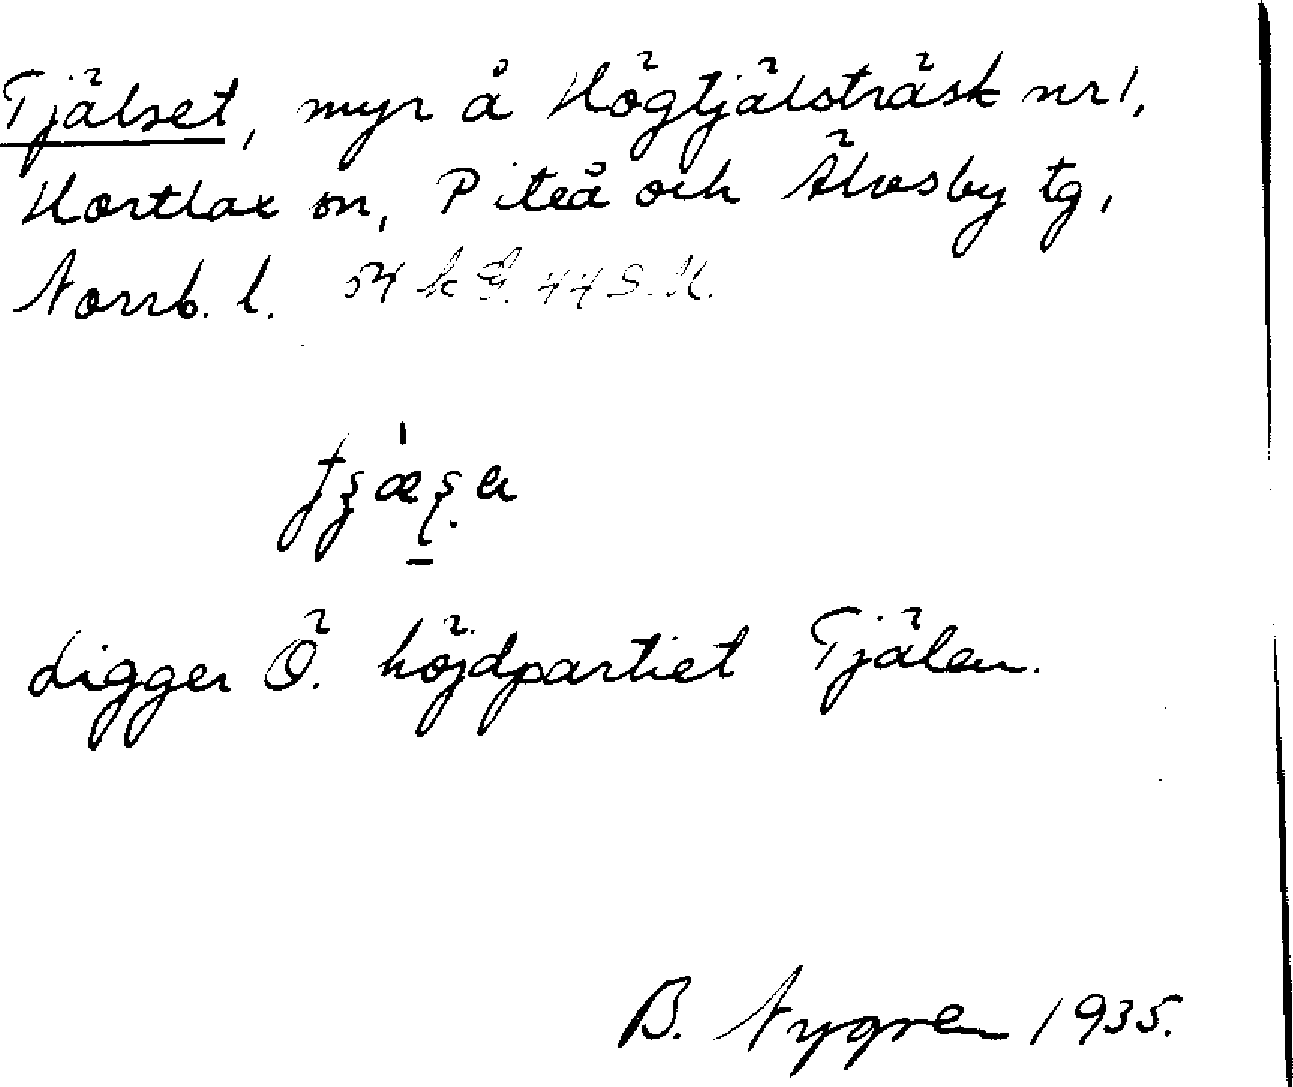 Tjälset, myr å Högtjälsträsk nr 1,
Hortlax sn, Piteå och Älvsby tg,
Norrb. l.
Ligger Ö. höjdpartiet Tjälen.
B. Nygren 1935.